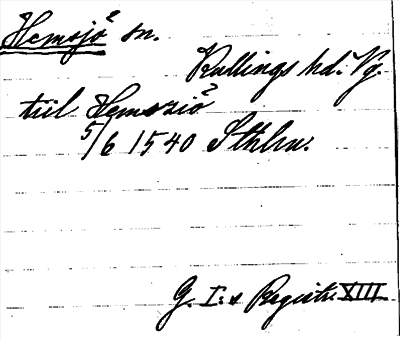 Hemsjö² sn.
Kullings hd. Vg.
till Hemssiö²
5/6 1540 Sthlm.
G. I:s Registr. XIII